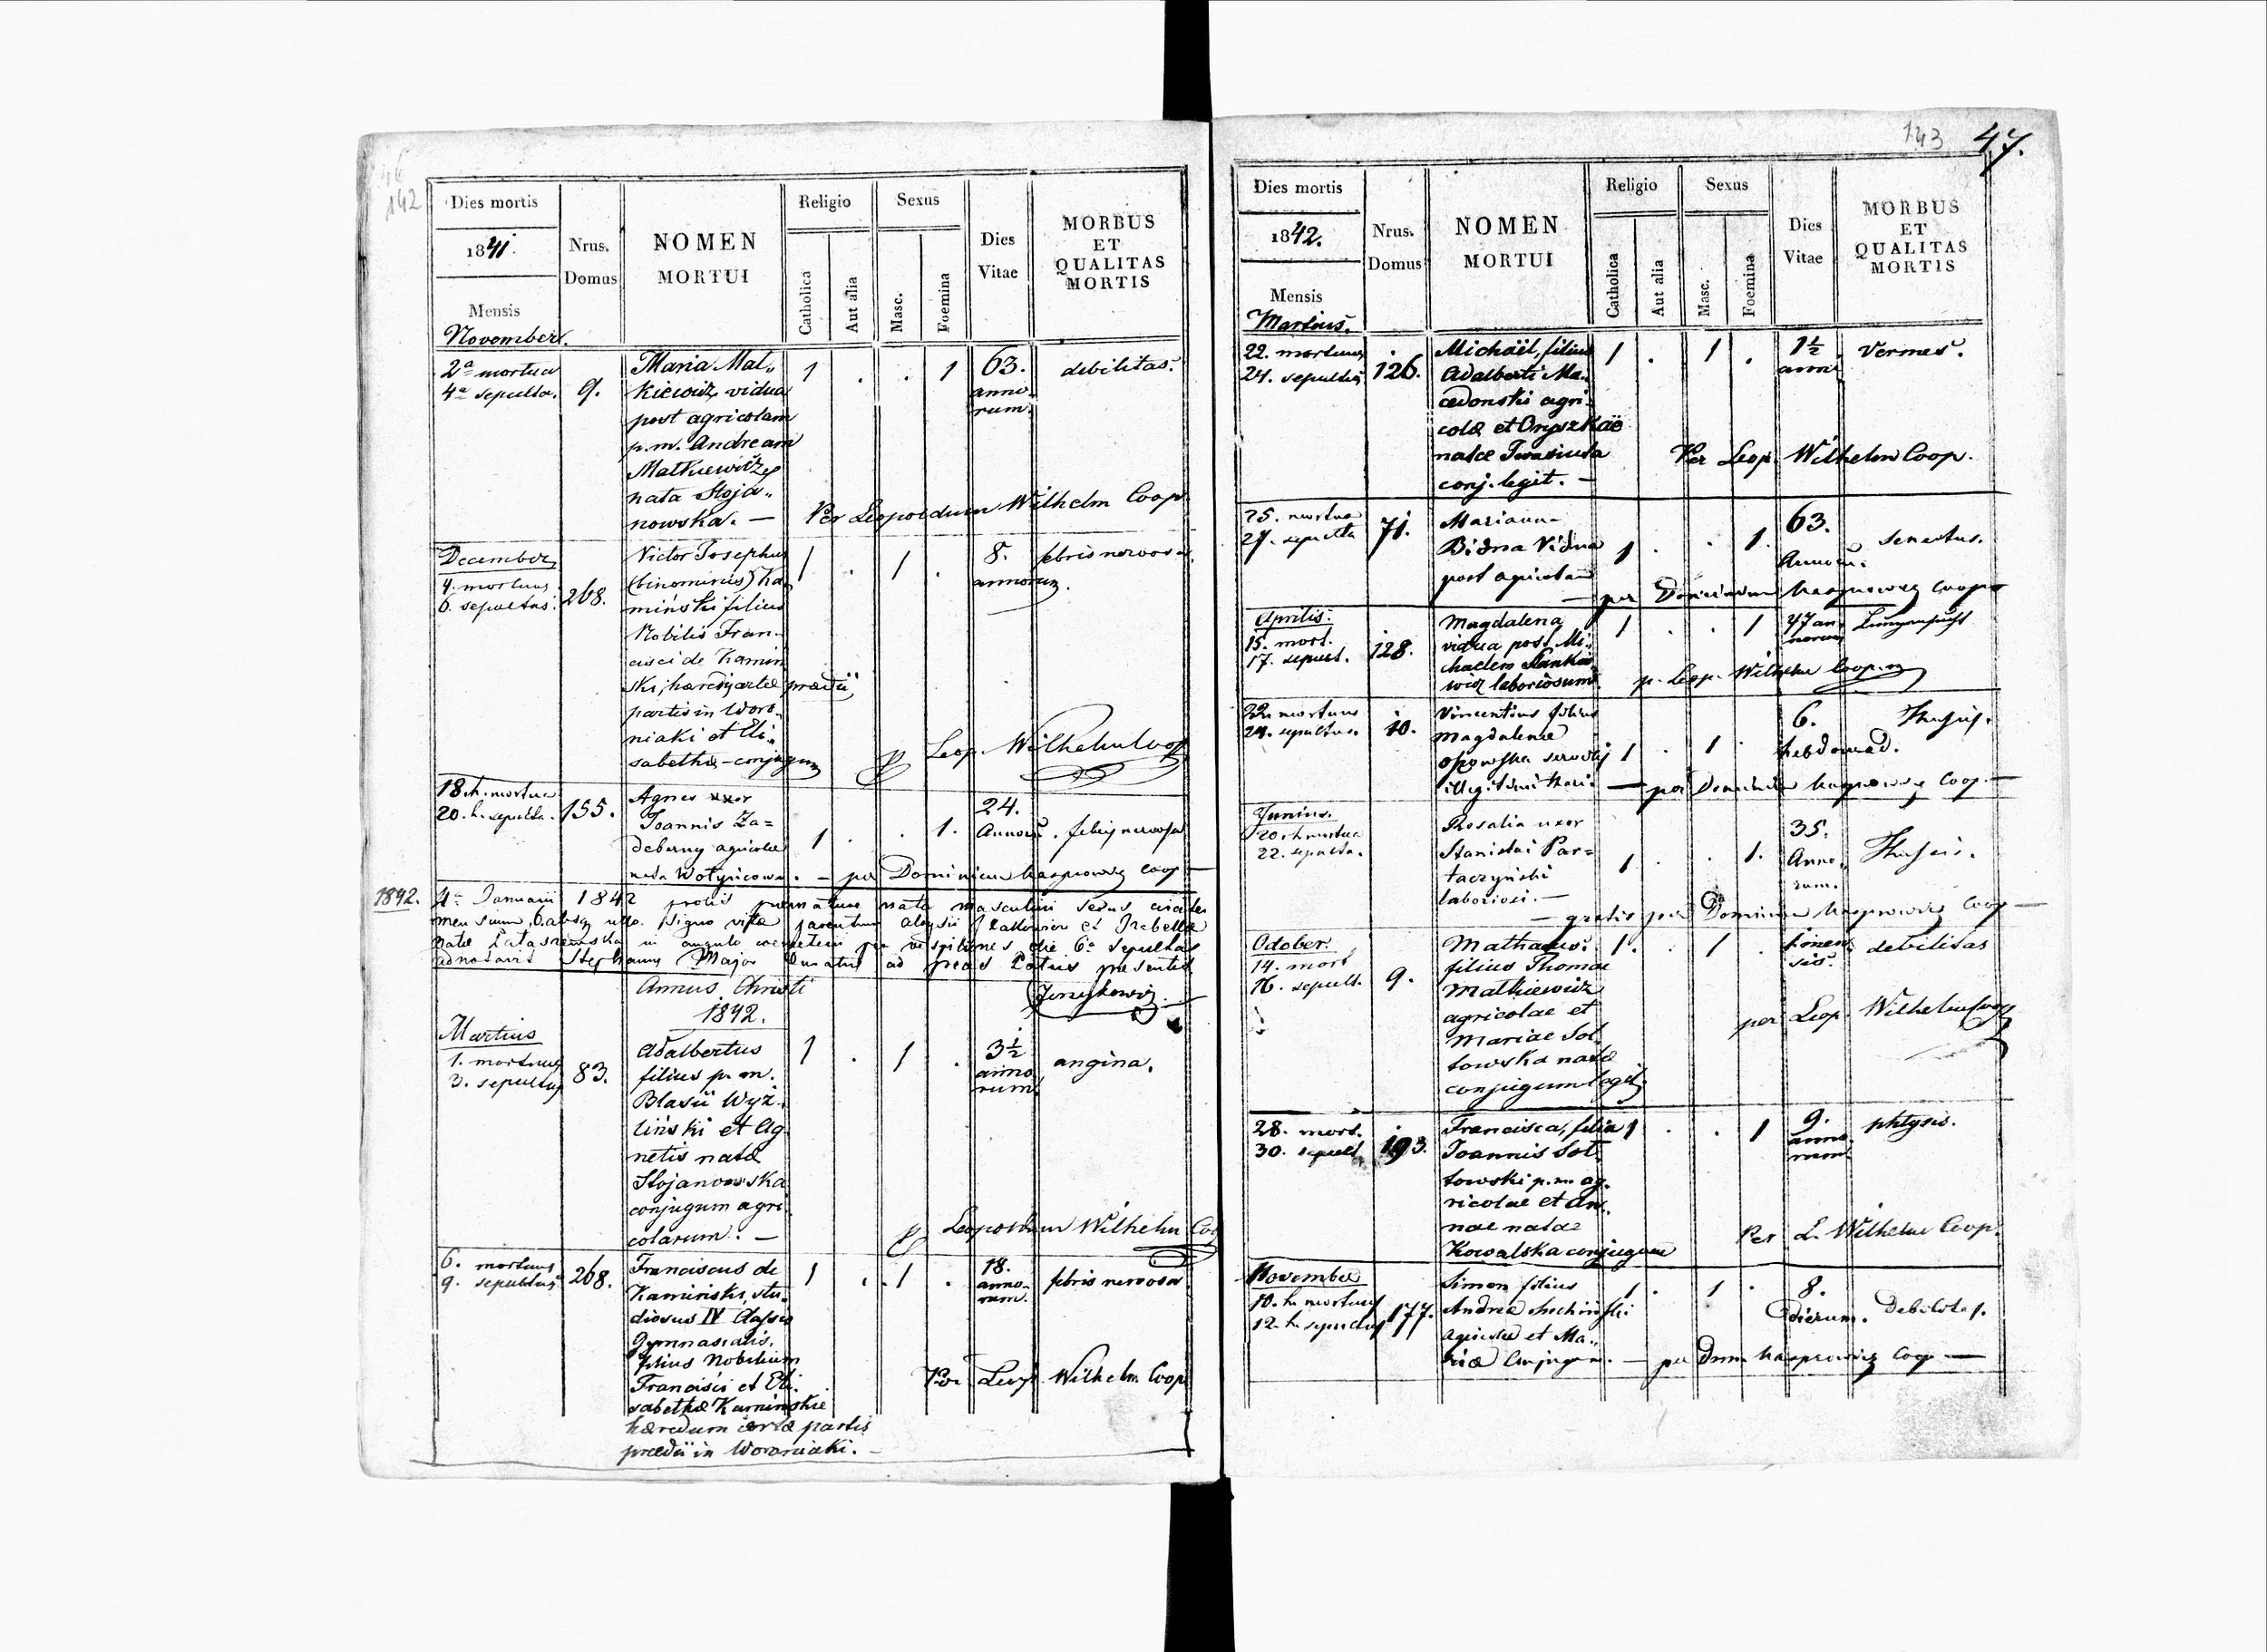 142
Dies mortis
1841.
Mensis
November.
Nrus.
Domus
NOMEN
MORTUI
Religio
Catholica
Aut alia
Sexus
Masc.
Foemina
Dies
Vitae
MORBUS
ET
QUALITAS
MORTIS
2a mortua
4a sepulta.
9.
Maria Mat„
kiewicz vidua
post agricolam
p.m. Andream
Matkiewicz,
nata Stoja„
nowska. —
1 . . 1
63.
anno
rum.
debilitas.
Per Leopoldum Wilhelm Coop.
December
4. mortuus
6. sepultus.
268.
Victor Josephus
(binominius) Ka
miński filius
Nobilis Fran-
cisci de Kamin
ski, haeredis certae praedii
partis in Woro„
niaki et Eli„
sabethae – conjugum
1 . 1 .
8.
annorum.
febris nervosa.
Leop. Wilhelm Coop
18. h. mortua
20. h. sepulta.
155.
Agnes uxor
Joannis Za=
deberny agricolae
nata
1 . . 1.
24.
Annorum. febris nervosa
— per Dominicum Kasprowicz Coop —
1842. 4a Januarii 1842 prolis praemature nata masculini sexus circiter
mensium 6. absq ullo signo vitae parentum Aloysii et Isabellae
natae in angulo coemeterii per vespilliones die 6a sepultas
adnotavit Stephanus Major ad preces Patris praesentes
Jerzykowicz.
Annus Christi
1842.
Martius
1. mortuus
3. sepultus
83.
Adalbertus
filius p. m.
Blasii Wyż„
liński et Ag
netis natae
Stojanowska
conjugum agri
colarum. —
1 . 1 .
3½
anno
rum.
angina.
Leopoldum Wilhelm Coop
6. mortuus
9. sepultus
268.
Franciscus de
Kamiński, stu„
diosus IV Classis
Gymnasialis,
filius Nobilium
Francisci et Eli„
sabethae Kamińskie
haeredum certae partis
praedii in Woroniaki. —
1 . 1 .
18.
anno-
rum.
febris nervosa
Per Leop. Wilhelm Coop
143 47.
Dies mortis
1842.
Mensis
Martius.
Nrus.
Domus
NOMEN
MORTUI
Religio
Catholica
Aut alia
Sexus
Masc.
Foemina
Dies
Vitae
MORBUS
ET
QUALITAS
MORTIS
22. mortuus
24. sepultus
126.
Michaël, filius
Adalberti Ma„
cedonski agri„
colae et Onyszkae
natae
conj. legit. —
1 . 1 .
1½
anni
Vermes.
Per Leop. Wilhelm Coop.
25. mortua
27. sepulta
71.
Marianna
Bidna Vidua
post agricolam
1 . . 1.
63.
Annorum.
senectus.
— per Dominicum Kasprowicz Coop
Aprilis.
15. mort.
17. sepult.
128.
Magdalena
vidua post Mi„
chaelem Stankie
wicz laboriosum.
1 . . 1
47 an
norum
Lungensucht
p. Leop. Wilhelm Coop.
22. mortuus
24. sepultus.
10.
Vincentius filius
Magdalenae
illegitimi thori.
1 . 1 .
6.
hebdomad.
Thusis.
— per Dominicum Kasprowicz Coop. —
Junius.
20. h mortua
22. sepulta.
Rosalia uxor
Stanislai Par=
taczyński
laboriosi. —
1 . . 1.
35.
Anno„
rum.
Thusis.
— gratis per Dominicum Kasprowicz Coop —
October.
14. mort
16. sepult.
9.
Mathaeus.
filius Thomae
Matkiewicz
agricolae et
Mariae Sot„
towska natae
conjugum legit.
1. . 1 .
1. men
sis.
debilitas
per Leop. Wilhelm Coop
28. mort.
30. sepult
193.
Francisca, filia
Joannis Sot„
towski p.m. ag„
ricolae et An„
nae natae
Kowalska conjugum
1 . . 1
9.
anno
rum.
phtysis.
Per L. Wilhelm Coop.
November
10. h. mortuus
12. h. sepultus
177.
Simon filius
Andreae
agricolae et Ma„
riae Conjugum. —
1 . 1 .
8.
dierum.
Debilitas.
per Dnm Kasprowicz Coop —